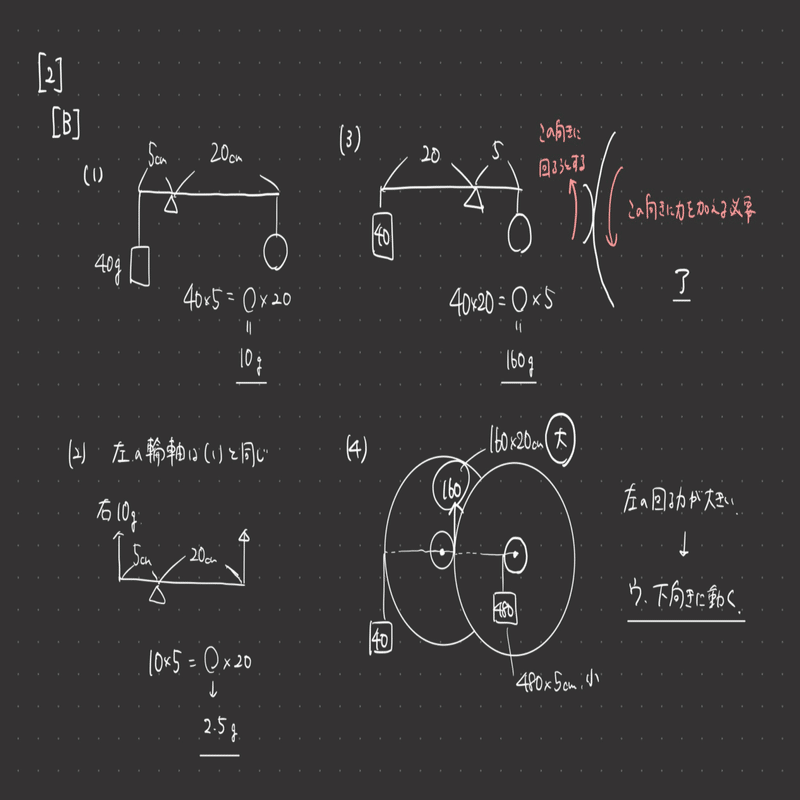 [2]
[B]
(1)
5cm 20cm
40g
40×5=○×20
=
10g
(3)
20 5
40
この向きに
回ろうとする
この向きに力を加える必要
ア
40×20=○×5
=
160g
(2) 左の輪軸は(1)と同じ
右10g
5cm 20cm
10×5=○×20
↓
2.5g
(4)
160×20cm 大
160
40
480
480×5cm 小
左の回る力が大きい
↓
ウ. 下向きに動く.